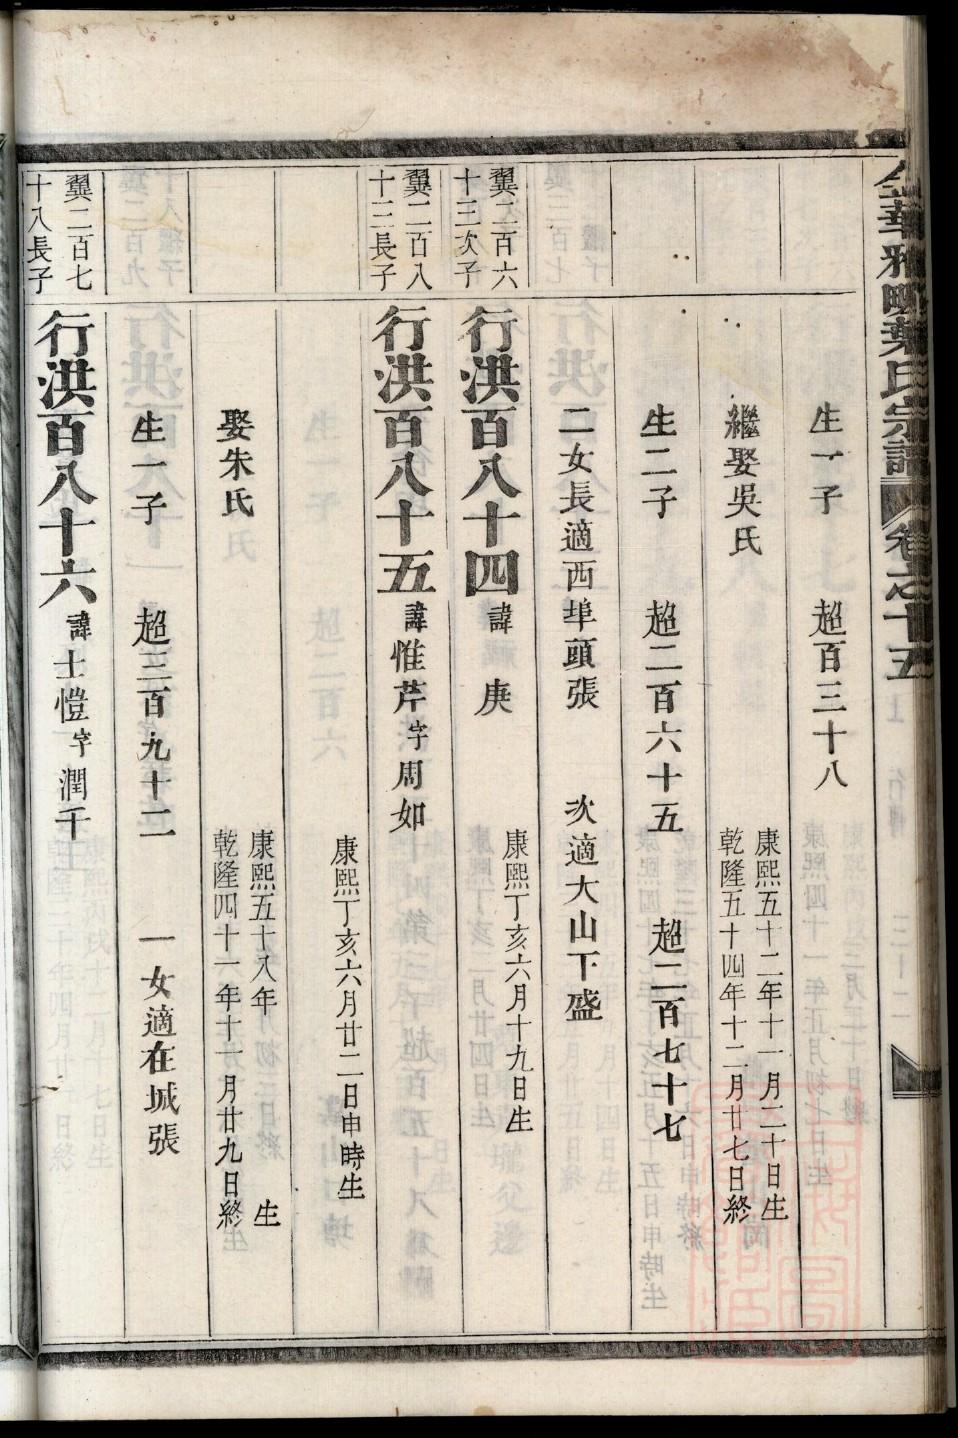 金華雅畈葉氏宗譜 卷之十五
生一子 超百三十八
繼娶吳氏 康熙五十二年十一月二十日生
乾隆五十四年十二月廿七日終
生二子 超二百六十五 超二百七十七
二女長適西埠頭張 次適大山下盛
翼二百六
十三次子
行洪百八十四 諱庚 康熙丁亥六月十九日生
翼二百八
十三長子
行洪百八十五 諱惟芹字周如
康熙丁亥六月廿二日申時生
娶朱氏 康熙五十八年 生
乾隆四十六年十一月廿九日終
生一子 超三百九十二 一女適在城張
翼二百七
十八長子
行洪百八十六 諱士愷字潤千